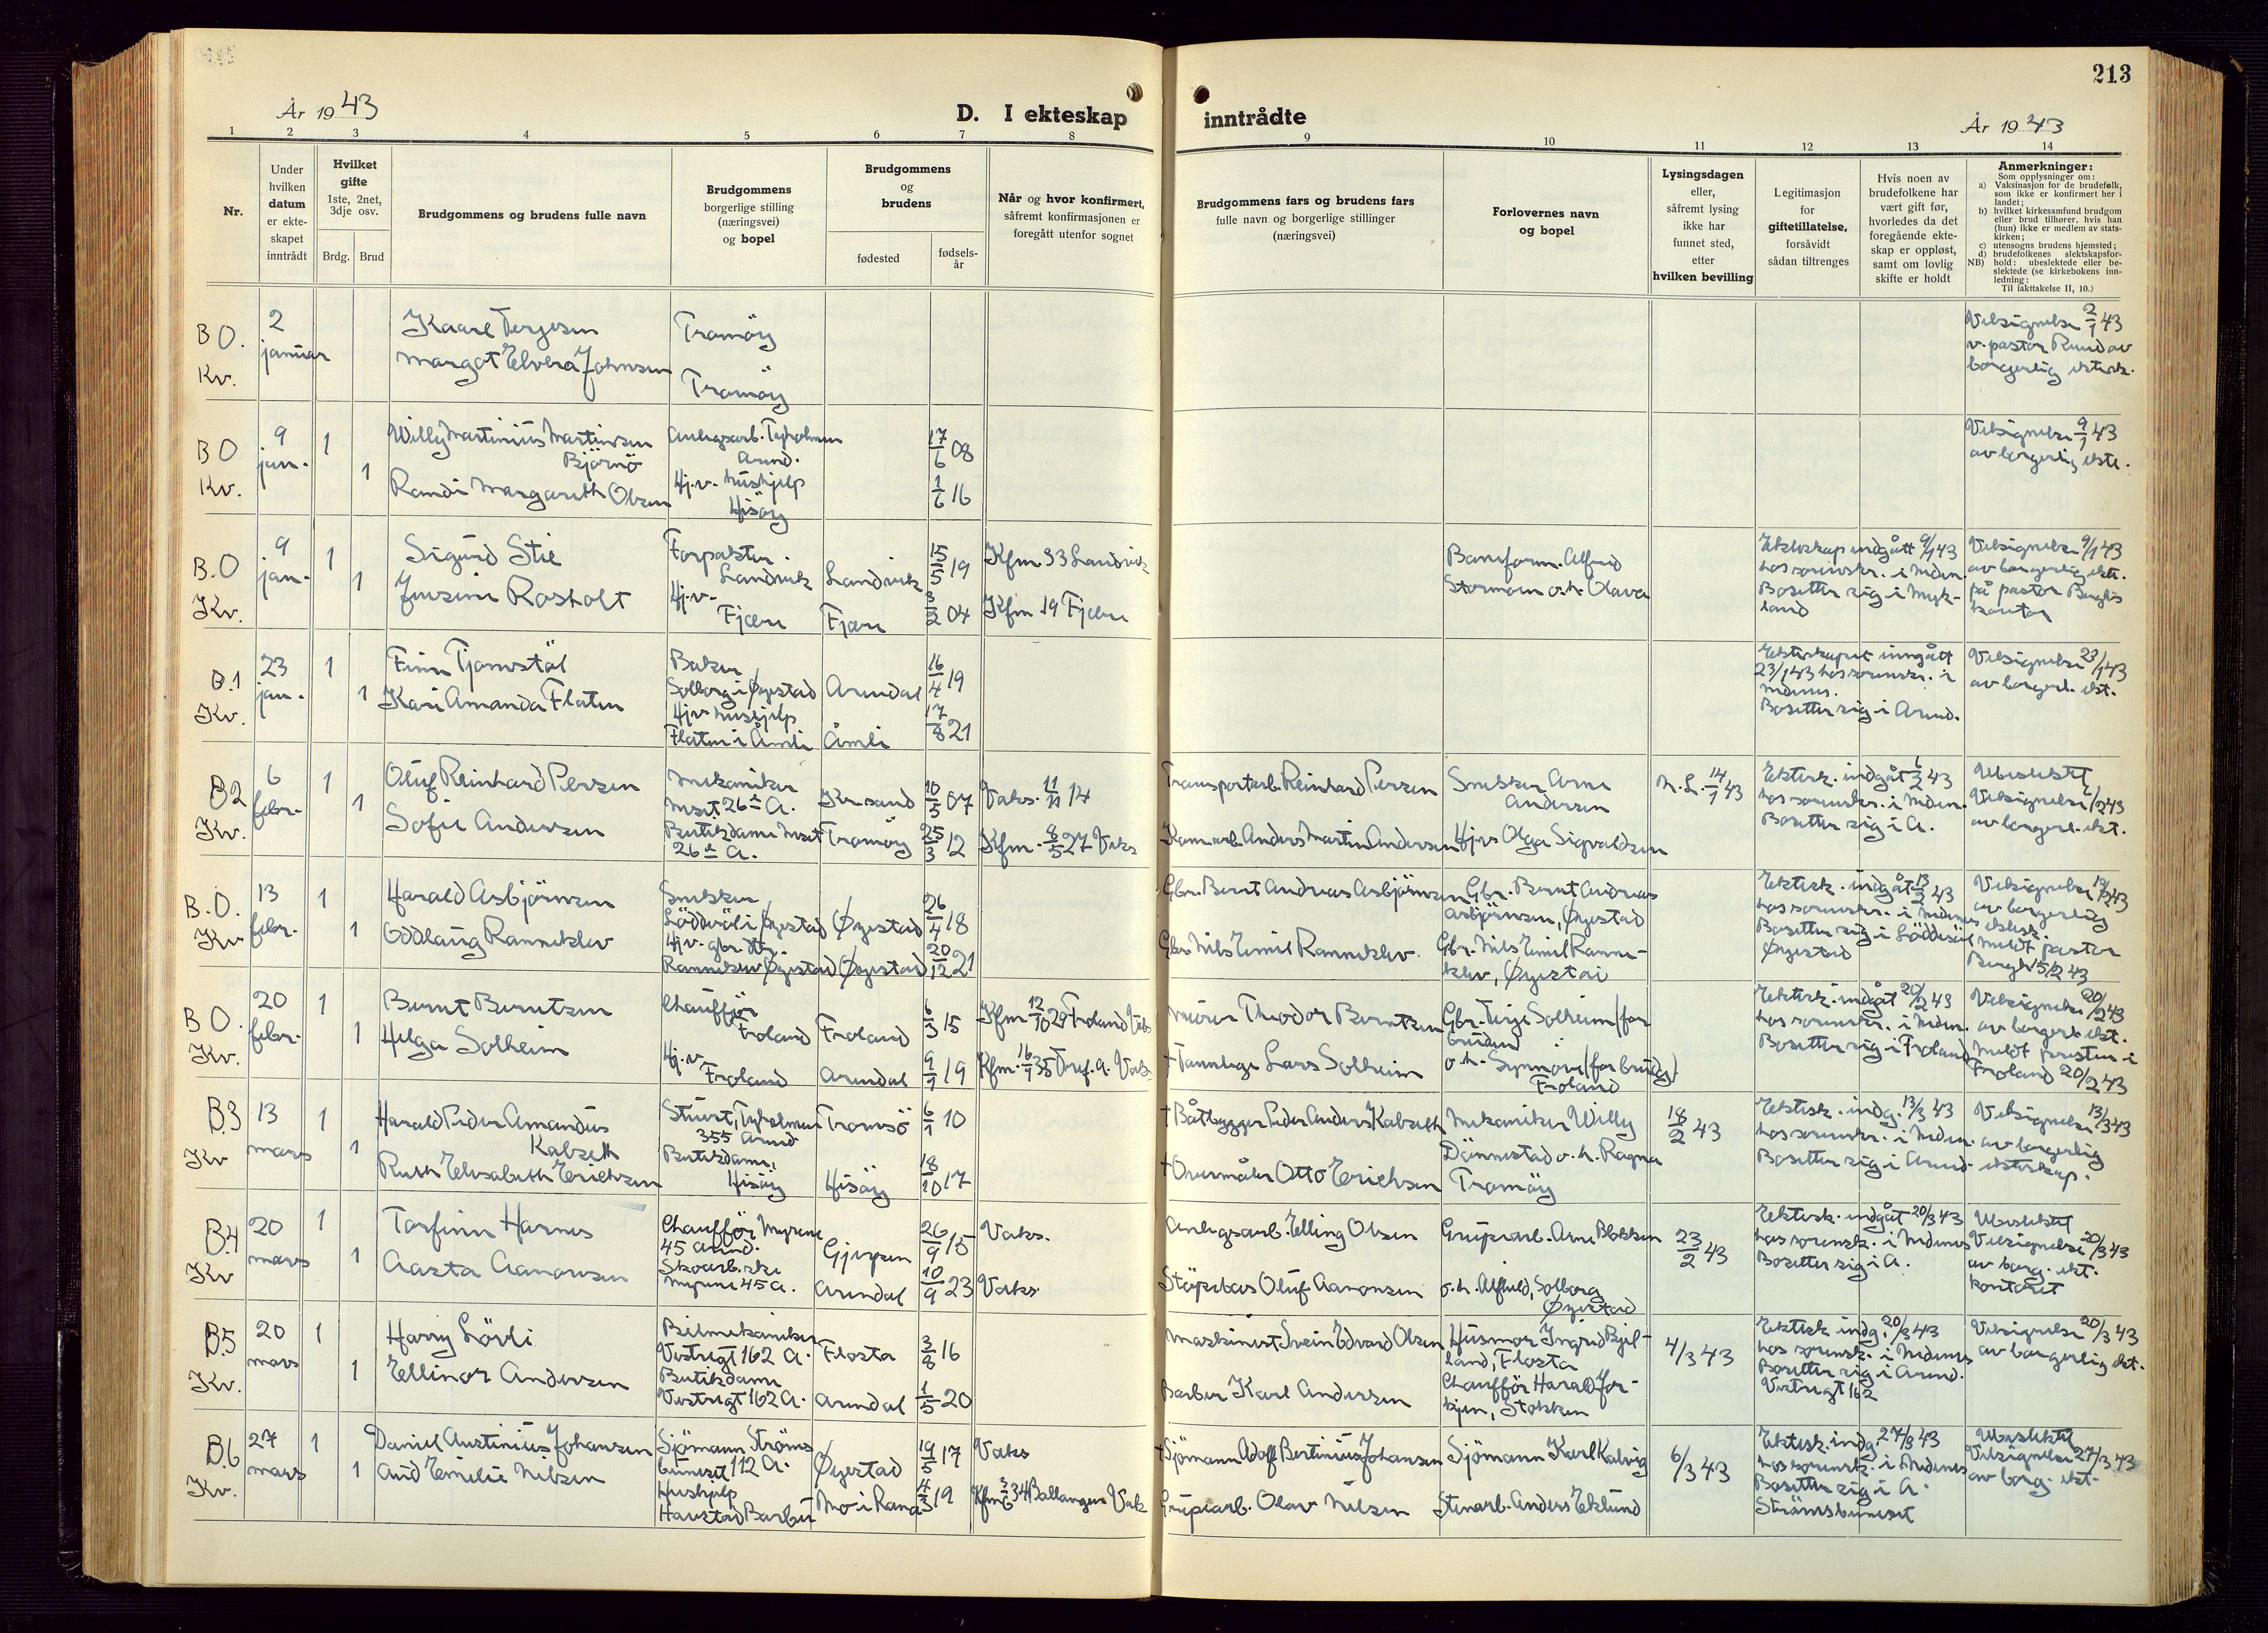 213
År 1943
D. I ekteskap inntrådte
År 1943
1 2 3 4 5 6 7 8 9 10 11 12 13 14
Nr.
Under
hvilken
datum
er ekte-
skapet
inntrådt
Hvilket
gifte
1ste, 2net,
3dje osv.
Brdg. Brud
Brudgommens og brudens fulle navn
Brudgommens
borgerlige stilling
(næringsvei)
og bopel
Brudgommens
og
brudens
fødested
fødsels-
år
Når og hvor konfirmert,
såfremt konfirmasjonen er
foregått utenfor sognet
Brudgommens fars og brudens fars
fulle navn og borgerlige stillinger
(næringsvei)
Forlovernes navn
og bopel
Lysingsdagen
eller,
såfremt lysing
ikke har
funnet sted,
etter
hvilken bevilling
Legitimasjon
for
giftetillatelse,
forsåvidt
sådan tiltrenges
Hvis noen av
brudefolkene har
vært gift før,
hvorledes da det
foregående ekte-
skap er oppløst,
samt om lovlig
skifte er holdt
Anmerkninger:
Som opplysninger om:
a) Vaksinasjon for de brudefolk,
som ikke er konfirmert her i
landet;
b) hvilket kirkesamfund brudgom
eller brud tilhører, hvis han
(hun) ikke er medlem av stats-
kirken;
c) utensogns brudens hjemsted;
d) brudefolkenes slektskapsfor-
NB) hold: ubeslektede eller be-
slektede (se kirkebokens inn-
ledning:
Til iakttakelse II, 10.)
B O.
Kv.
2
januar
Kaare Terjesen
Margot Elvera Johnsen
Tromöy
Tromöy
Velsignelse 2/1 43
v. pastor Ruud av
borgerlig ektesk.
B O
Kv.
9
jan.
1
1
Willy Martinius Martinsen
Björnö
Randi Margareth Olsen
Anlegsarb. Tyholmen
Arend.
Hj.v. hushjelp
Hisöy
17/6 08
1/6 16
Velsignelse 9/1 43
av borgerlig ekte.
B.O
Kv.
9
jan.
1
1
Sigurd Stie
Rosholt
Forpakter.
Landvik
Hj.v.
Fjære
Landvik
Fjære
15/5 19
3/2 04
Kfm. 33 Landvik
Kfm 19 Fjære
Alfred
Stormoen o.h. Olava
Ekteskap indgått 9/1 43
hos sorenskr. i Neden.
Bosetter sig i Myk-
land
Velsignelse 9/1 43
av borgerlig ekt.
på pastor Berghs
kontor
B.1
Kv.
23
jan.
1
1
Finn Tjomstöl
Kari Amanda Flaten
Baker
Solborg i Øyestad
Hjv hushjelp
Flaten i Åmli
Arendal
Åmli
16/4 19
17/8 21
Ekteskapet inngått
23/1 43 hos sorenskr. i
Nedenes.
Bosetter sig i Arend.
Velsignelse 23/1 43
av borgerl. ekt.
B2
Kv.
6
febr.
1
1
Oluf Reinhard Persen
Sofie Andersen
Mekaniker
26 A.
Butikdame
26 A.
Kr.sand
Tromöy
10/5 07
25/3 12
Vaks. 11/11 14
Kfm. 8/5 27 Vaks
Transportarb. Reinhard Persen
Kom.arb. Anders Martin Andersen
Snekker Arne
Andersen
Hjv. Olga Sigvaldsen
N.L. 14/1 43
Ektesk. indgåt 43
hos sorenskr. i Neden.
Bosetter sig i A.
Ubeslektet
Velsignelse 6/2 43
av borgerl. ekt.
B.O.
Kv
13
febr.
1
1
Harald Asbjörnsen
Oddlaug Ranneklev
Snekker
Løddesöl i Øyestad
Hj.v. gbr. dtr.
Ranneklev Øyestad
Øyestad
Øyestad
26/4 18
20/12 21
Gbr. Bernt Andreas Asbjörnsen
Gbr. Nils Emil Ranneklev.
Gbr. Bernt Andreas
Asbjörnsen, Øyestad
Gbr. Nils Emil Ranne-
klev, Øyestad
Ektesk. indgåt 13/2 43
hos sorenskr. i Nedenes
Bosetter sig i Löddesöl
Øyestad
Velsignelse 13/2 43
av borgerlig
ektesk.
Meldt pastor
Bergh 15/2 43
B O.
Kv.
20
febr.
1
1
Bernt Berntsen
Helga Solheim
Chauffør
Froland
Hj.v.
Froland
Froland
Arendal
6/3 15
9/9 19
Kfm. 12/10 29 Froland Vaks
Kfm. 16/9 35 Tref. A. Vak.
Murer Theodor Berntsen
+Tannlege Lars Solheim
Gbr. Terje Solheim (for
bruden)
o.h. Synnöve (for brudg.)
Froland
Ektesk. indgåt 20/2 43
hos sorenskr. i Neden.
Bosetter sig i Froland
Velsignelse 20/2 43
av borgerl. ekt.
Meldt presten i
Froland 20/2 43
B.3
Kv
13
mars
1
1
Harald Peder Amandus
Kalseth
Ruth Elisabeth Erichsen
Stuert, Tyholmen
355 Arend
Butikdame,
Hisöy
Tromsö
Hisöy
6/1 10
18/10 17
+Båtbygger Peder Anders Kalseth
+Overmåler Otto Erichsen
Mekaniker Willy
Dännestad o.h. Ragna
Tromöy
18/2 43
Ektesk. indg. 13/3 43
hos sorenskr. i Neden.
Bosetter sig i Arend.
Velsignelse 13/3 43
av borgerlig
ekteskap.
B.4
Kv
20
mars
1
1
Torfinn Harnes
Aasta Aanonsen
Chauffør Myrene
45 Arend.
Skoarb.ske
Myrene 45 A.
Gjerpen
Arendal
26/9 15
10/9 23
Vaks.
Vaks.
Anlegsarb. Elling Olsen
Oluf Aanonsen
Grupearb. Arne Blokken
o.h. Alfhild, Solborg
Øyestad
23/2 43
Ektesk. indgåt 20/3 43
hos sorensk. i Nedenes
Bosetter sig i A.
Ubeslektet
Velsignelse 20/3 43
av borg. ekt.
kontoret
B.5
Kv.
20
mars
1
1
Harry Lövli
Ellinor Andersen
Bilmekaniker
Vestregt 162 A.
Butikdame
Vestregt 162 A.
Flosta
Arendal
3/8 16
1/5 20
Maskinist Svein Edvard Olsen
Barber Karl Andersen
Husmor Ingrid Bjel-
land, Flosta
Chauffør Harald For-
kjen, Stokken
4/3 43
Ektesk indg. 20/3 43
hos sorensk. i Nedenes
Bosetter sig i Arend.
Vestregt 162
Velsignelse 20/3 43
av borgerlig ekt.
B.6
Kv.
27
mars
1
1
Daniel Austinius Johansen
Aud Emilie Nilsen
Sjömann Ströms
112 A.
Hushjelp
Haustad Barbu
Øyestad
Mo i Rana
19/5 17
4/3 19
Vaks
Kfm 3/6 34 Ballangen Vak
+Sjömann Adolf Bertinius Johansen
Grupearb. Olav Nilsen
Sjömann Karl Kalvig
Stenarb. Anders Eklund
6/3 43
Ektesk. indg. 27/3 43
hos sorensk. i Nedenes
Bosetter sig i A.
Strömsbuneset
Ubeslektet
Velsignelse 27/3 43
av borg. ekt.